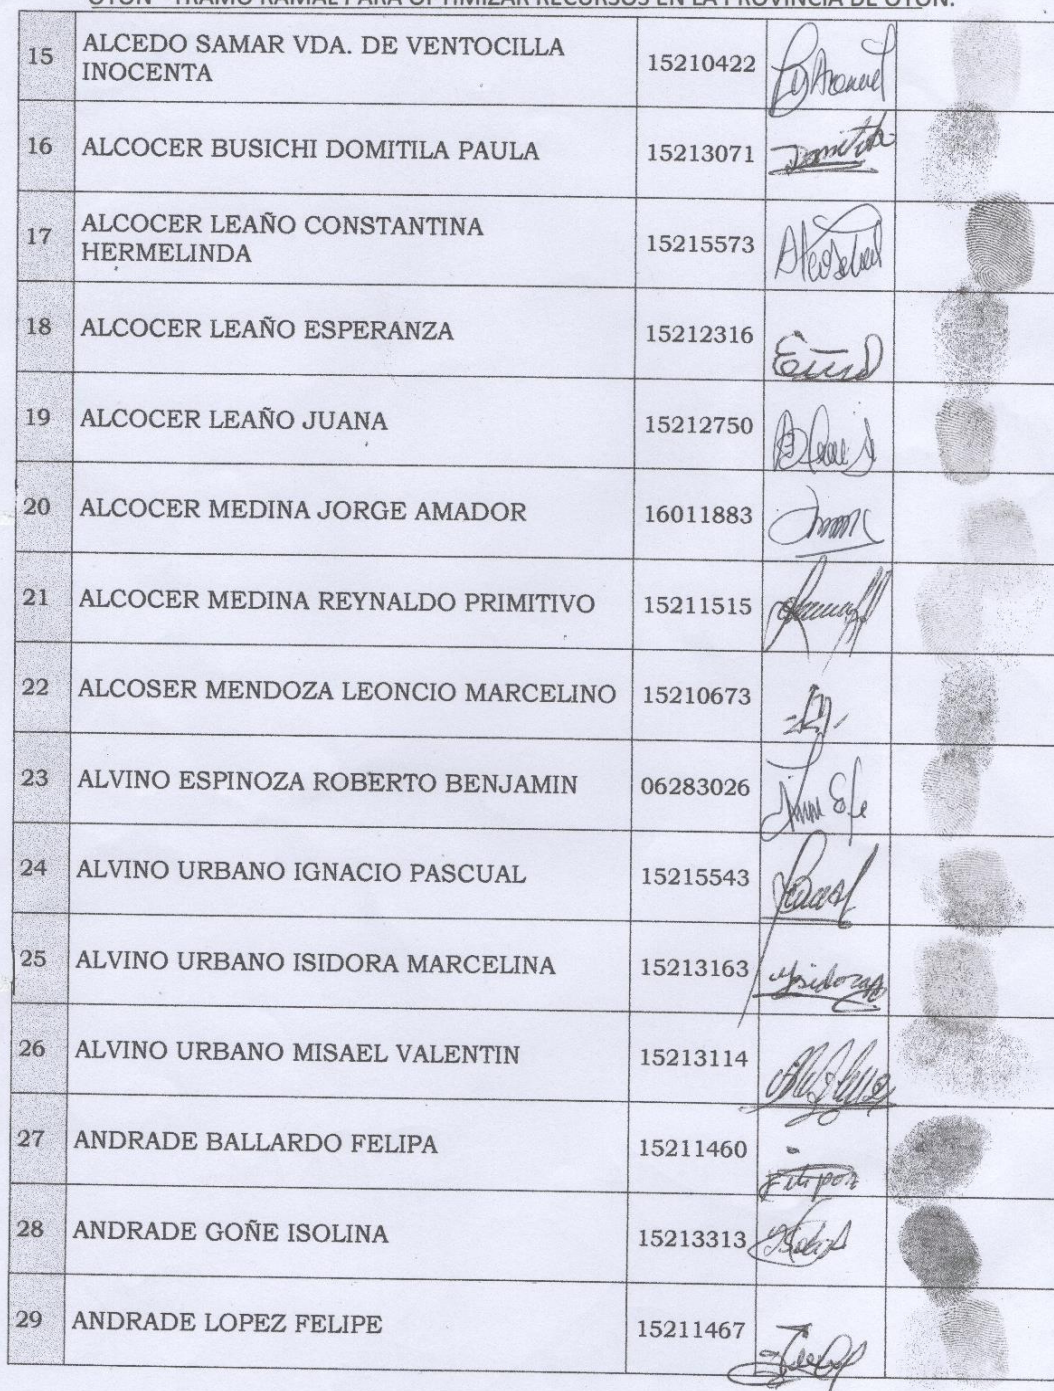 OYON - TRAMO RAMAL PARA OPTIMIZAR RECURSOS EN LA PROVINCIA DE OYON.
15 ALCEDO SAMAR VDA. DE VENTOCILLA 15210422
INOCENTA
16 ALCOCER BUSICHI DOMITILA PAULA 15213071 Domitila
17 ALCOCER LEAÑO CONSTANTINA 15215573
HERMELINDA
18 ALCOCER LEAÑO ESPERANZA 15212316
19 ALCOCER LEAÑO JUANA 15212750
20 ALCOCER MEDINA JORGE AMADOR 16011883
21 ALCOCER MEDINA REYNALDO PRIMITIVO 15211515
22 ALCOSER MENDOZA LEONCIO MARCELINO 15210673
23 ALVINO ESPINOZA ROBERTO BENJAMIN 06283026
24 ALVINO URBANO IGNACIO PASCUAL 15215543
25 ALVINO URBANO ISIDORA MARCELINA 15213163
26 ALVINO URBANO MISAEL VALENTIN 15213114
27 ANDRADE BALLARDO FELIPA 15211460
28 ANDRADE GOÑE ISOLINA 15213313
29 ANDRADE LOPEZ FELIPE 15211467